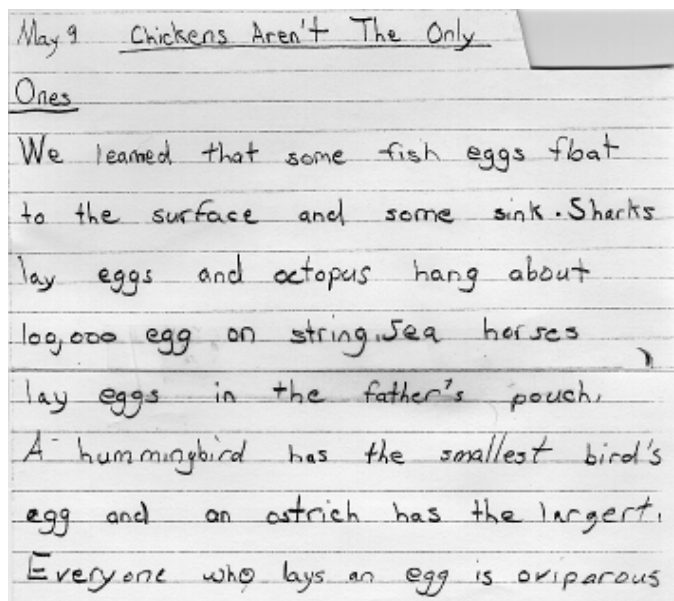 May 9 Chickens Aren't The Only
Ones
We learned that some fish eggs float
to the surface and some sink. Sharks
lay eggs and octopus hang about
100,000 egg on string. Sea horses
lay eggs in the father's pouch.
A hummingbird has the smallest bird's
egg and an ostrich has the largert.
Everyone who lays an egg is oviparous